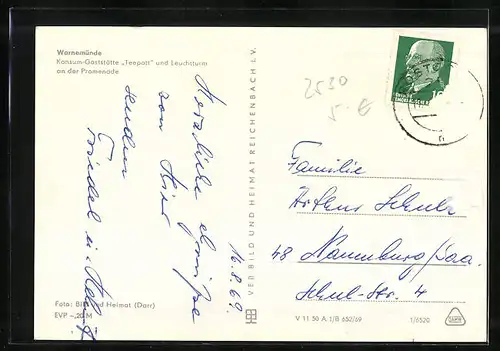 Warnemünde
Konsum-Gaststätte „Teepott" und Leuchtturm
an der Promenade
2530
5.- €
16.8.69
Herzliche Grüße
von hier
senden
Friedel u.
VEB BILD UND HEIMAT REICHENBACH I. V.
Familie
Schulz
48 Naumburg/Saa.
Schul-Str. 4
Foto: Bild und Heimat (Darr)
EVP -,20 M
V 11 50 A 1/B 652/69
1/6520